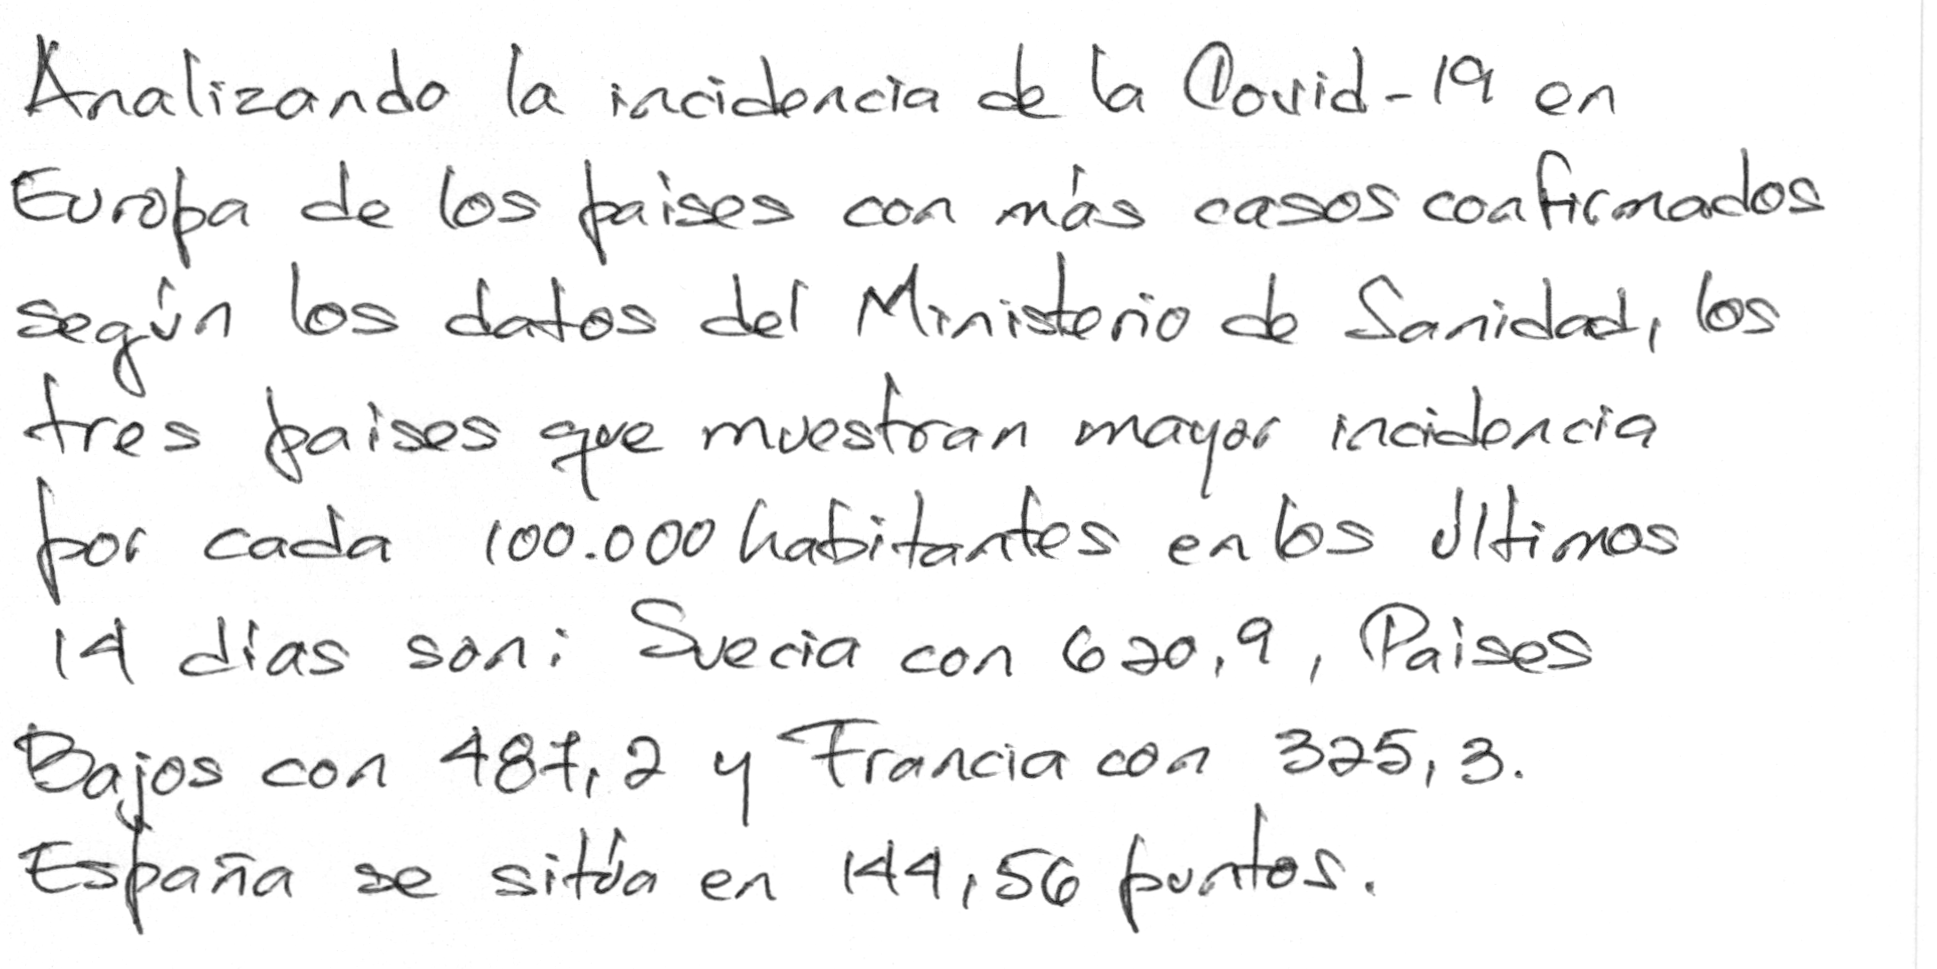 Analizando la incidencia de la Covid-19 en
Europa de los paises con más casos confirmados
según los datos del Ministerio de Sanidad, los
tres paises que muestran mayor incidencia
por cada 100.000 habitantes en los últimos
14 días son: Suecia con 620,9, Paises
Bajos con 487,2 y Francia con 325,3.
España se sitúa en 144,56 puntos.